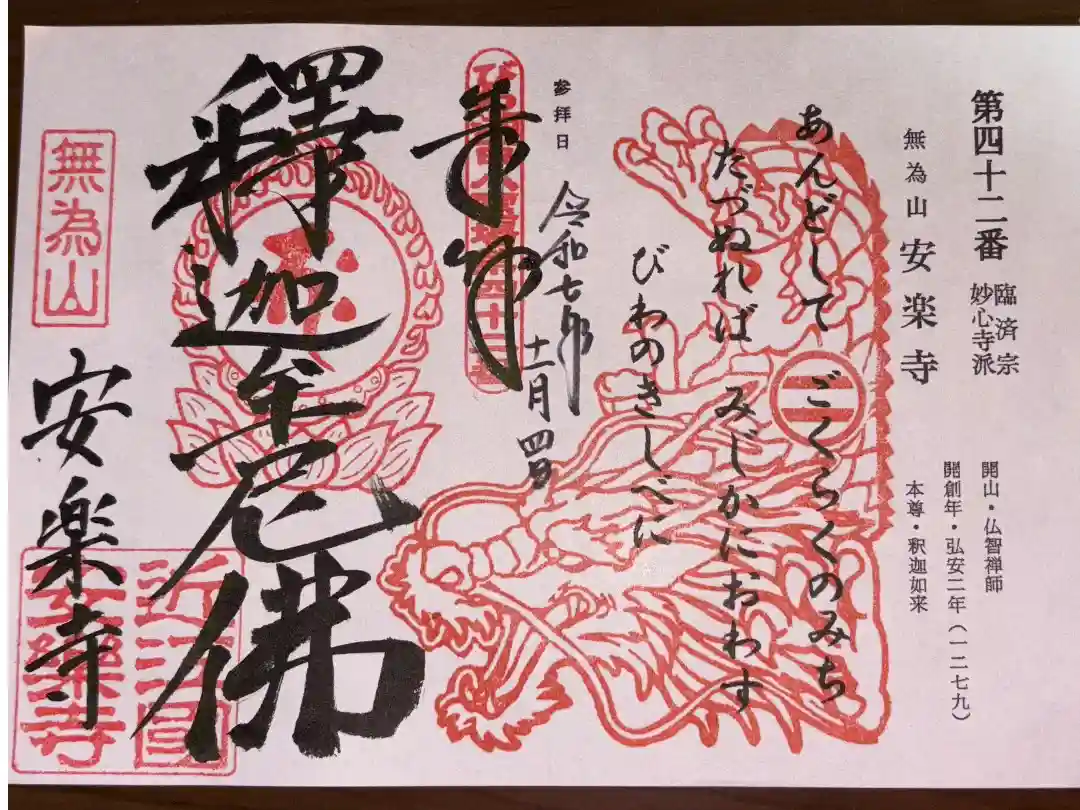 第四十二番
臨済宗
妙心寺派
無為山 安楽寺
開山・仏智禅師
開創年・弘安二年(一二七九)
本尊・釈迦如来
あんどして ごくらくのみち
たづぬれば みじかにおわす
びわのきしべに
参拝日
令和七年
十一月四日
奉拝
釋迦牟尼佛
無為山
安楽寺
近江国
安樂寺